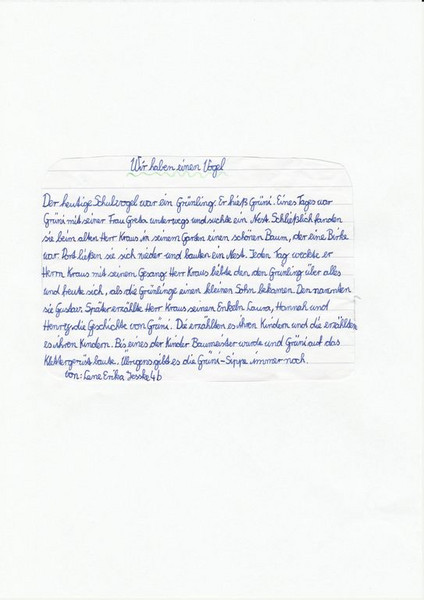 Wir haben einen Vogel
Der heutige Schulvogel war ein Grünling. Er hieß Grüni. Eines Tages war
Grüni mit seiner Frau Greta unterwegs und suchte ein Nest. Schließlich fanden
sie beim alten Herr Kraus in seinem Garten einen schönen Baum, der eine Birke
war. Dort ließen sie sich nieder und bauten ein Nest. Jeden Tag weckte er
Herrn Kraus mit seinem Gesang. Herr Kraus liebte den den Grünling über alles
und freute sich, als die Grünlinge einen kleinen Sohn bekamen. Den nannten
sie Gustav. Später erzählte Herr Kraus seinen Enkeln Laura, Hannah und
Henry die Geschichte von Grüni. Die erzählten es ihren Kindern und die erzählten
es ihren Kindern. Bis eines der Kinder Baumeister wurde und Grüni auf das
Klettergerüst baute. Übrigens gibt es die Grüni-Sippe immer noch.
von: Lene Erika 4b